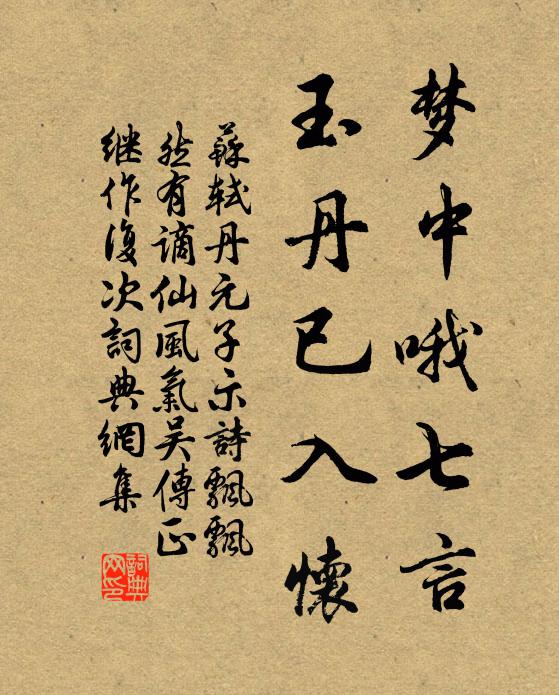 梦中哦七言
玉丹已入懷
蘇軾丹元子示詩飄飄
然有謫仙風氣吴傳正
继作復次詞典網集
詞典
网印